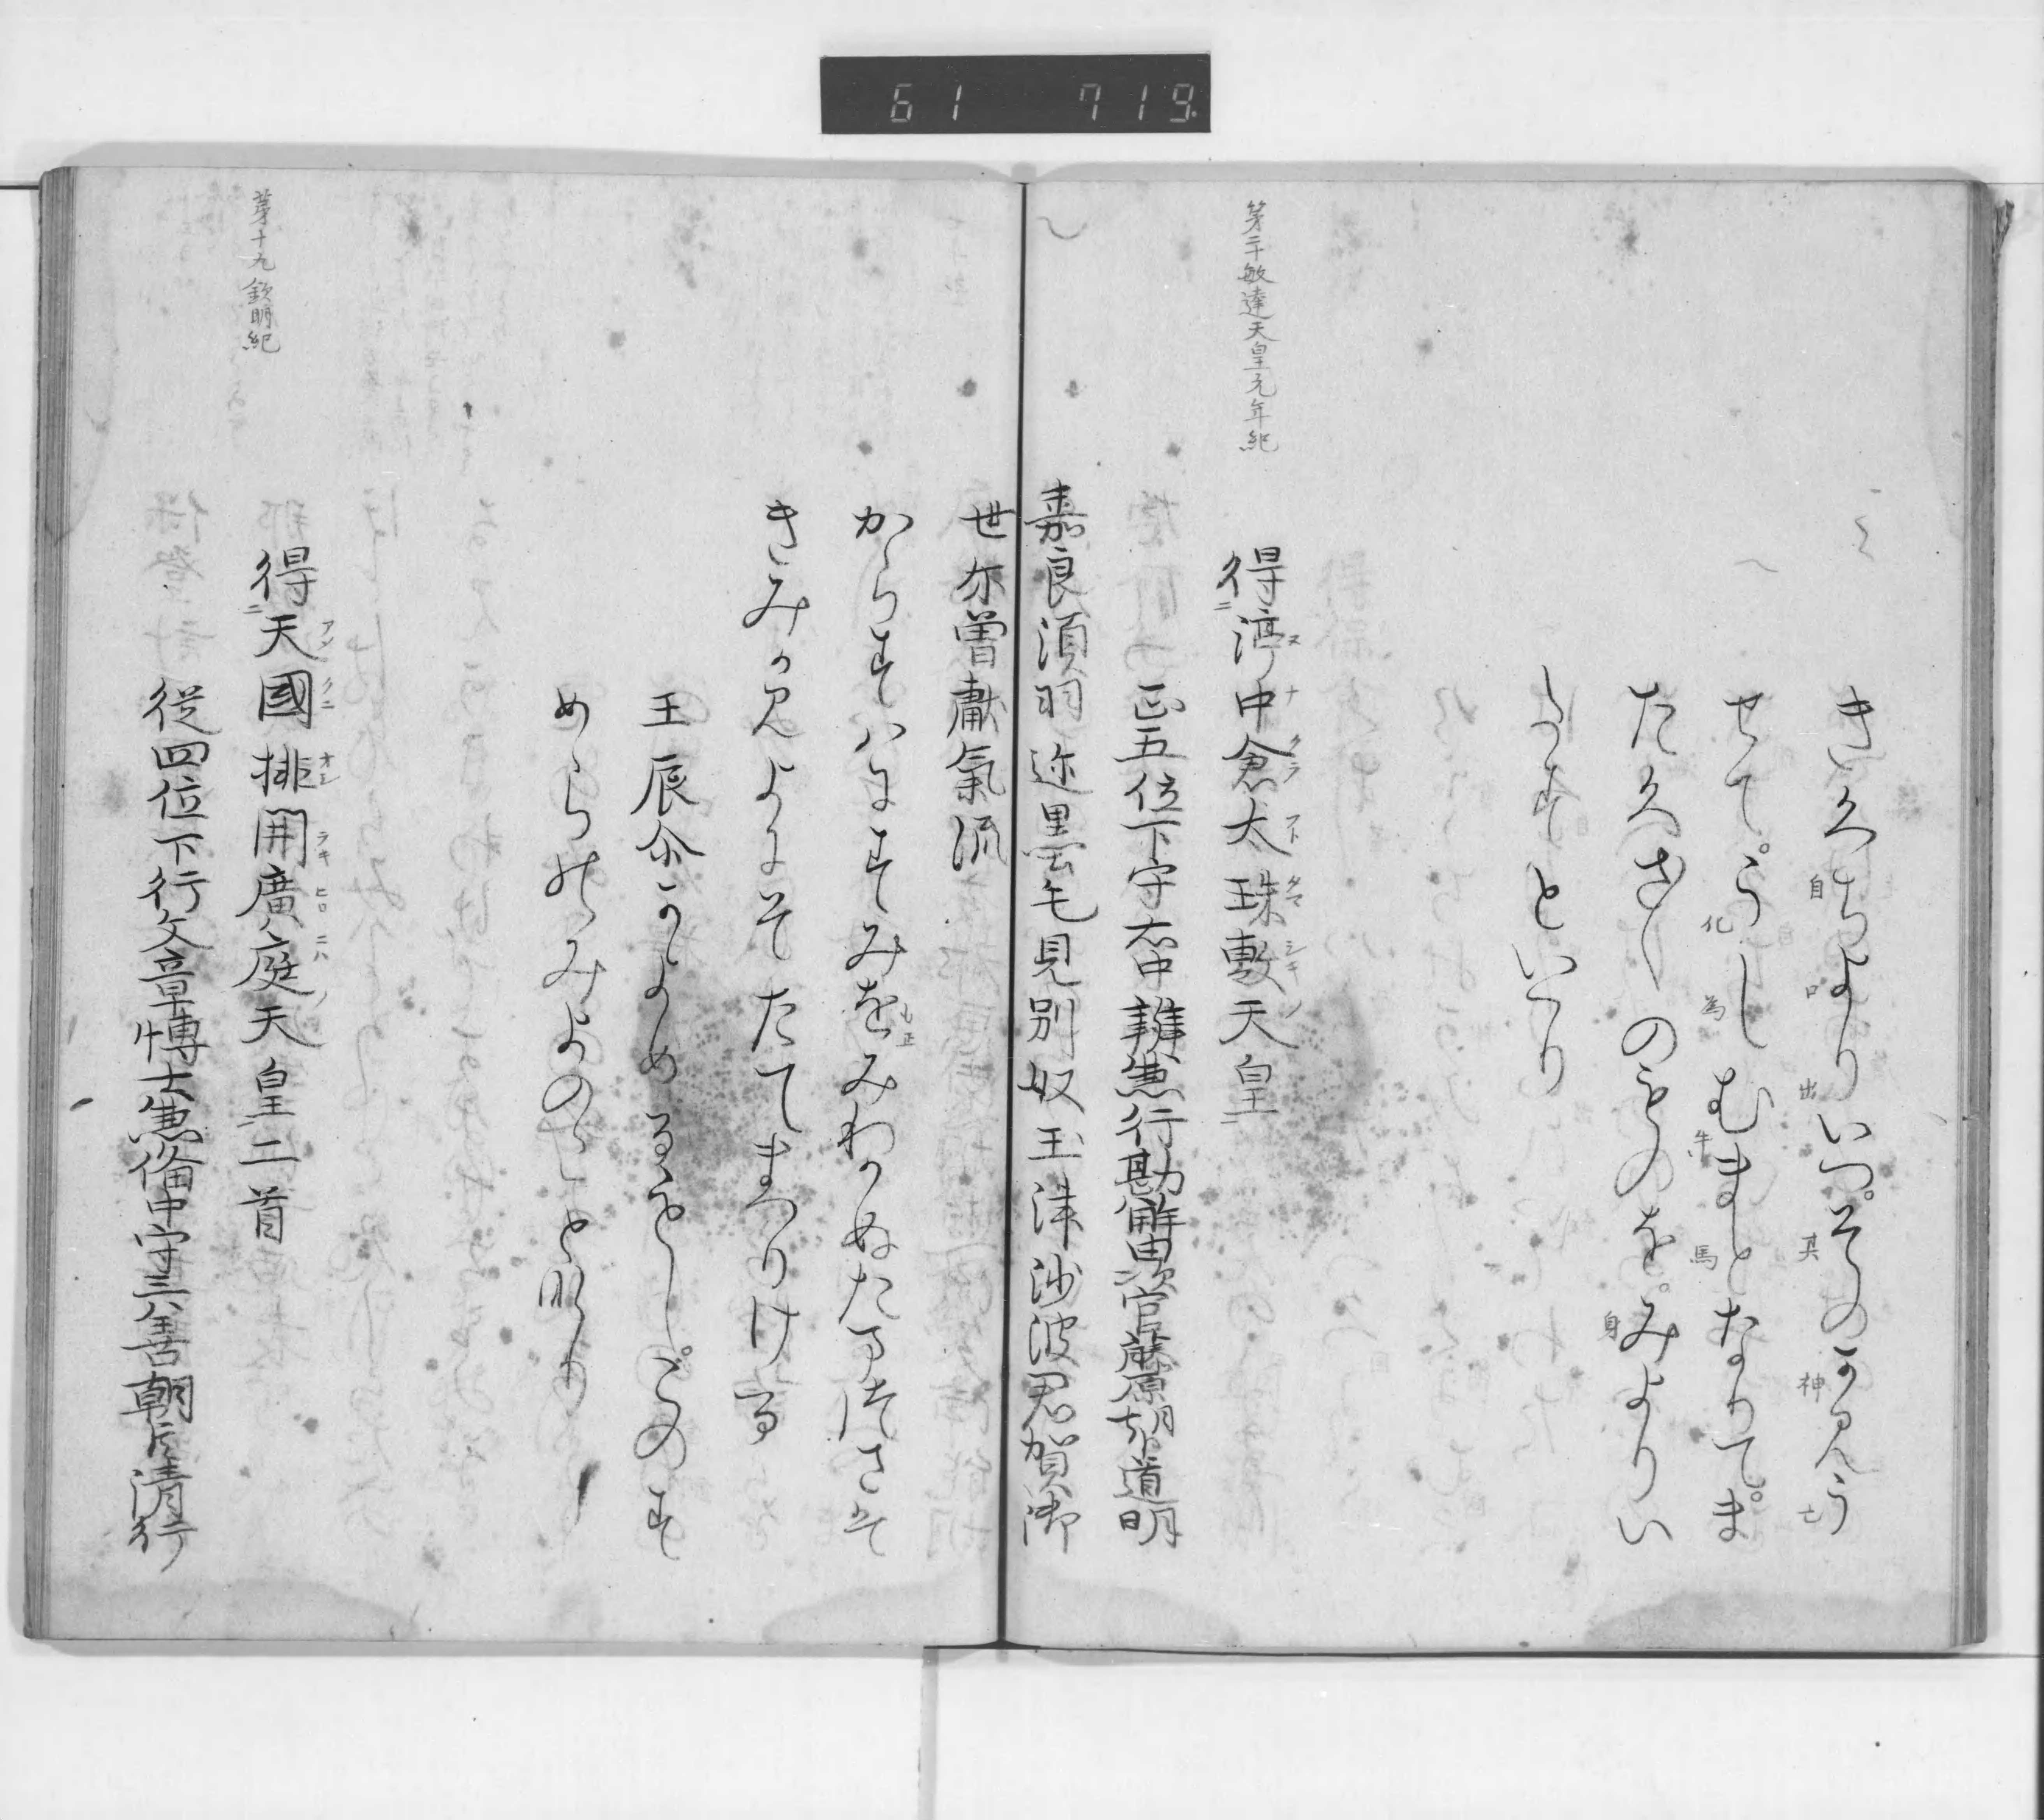 61 719
きみくちよりいつ。そのかみう
せて。うしむまとなりて。ま
たくさ〱のものを。みよりい
たすといへり
第二十敏達天皇元年紀
得渟中倉太珠敷天皇
正五位下守右中辨兼行勘解由次官藤原朝臣道明
嘉良須羽迩黒毛見別奴玉津沙波君賀御
世尓曽獻氣流
からすはにすみをみわかぬたまつさは
きみかみよにそたてまつりける
王辰尓かよめるもし。このす
めらのみよのことなり
第十九欽明紀
得天國排開廣庭天皇二首
従四位下行文章博士兼備中守三善朝臣清行